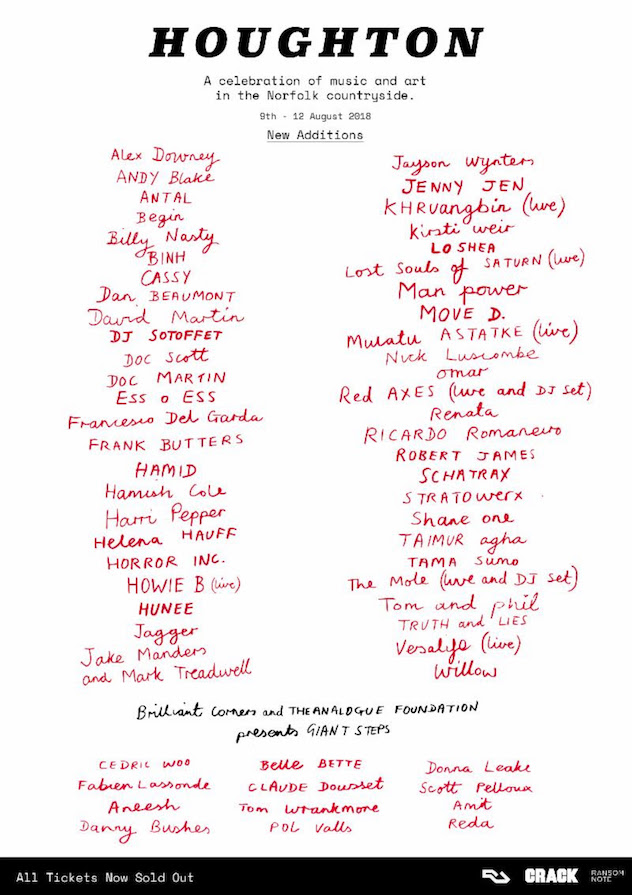 HOUGHTON
A celebration of music and art
in the Norfolk countryside.
9th - 12 August 2018
New Additions
Alex Downey
ANDY Blake
ANTAL
Begin
Billy Nasty
BINH
CASSY
Dan BEAUMONT
David Martin
DJ SOTOFFET
DOC Scott
DOC MARTIN
Ess o ESS
Francesco Del Garda
FRANK BUTTERS
HAMID
Hamish Cole
Harri Pepper
Helena HAUFF
HORROR INC.
HOWIE B (live)
HUNEE
Jagger
Jake Manders
and Mark Treadwell
Jayson Wynters
JENNY JEN
KHRuangbin (live)
Kirsti weir
LO SHEA
Lost Souls of SATURN (live)
Man power
MOVE D.
Mulatu ASTATKE (live)
Nick Luscombe
omar
Red AXES (live and DJ set)
Renata
RICARDO Romaneiro
ROBERT JAMES
SCHATRAX
STRATOwerx
Shane one
TAIMUR agha
TAMA Sumo
The Mole (live and DJ set)
Tom and phil
TRUTH and LIES
Vesalyo (live)
Willow
Brilliant Corners and THE ANALOGUE FOUNDATION
presents GIANT STEPS
CEDRIC WOO
Fabien Lassonde
Aneesh
Danny Bushes
Belle BETTE
CLAUDE Dousset
Tom Wrankmore
POL Valls
Donna Leake
Scott Pelloux
Amit
Reda
All Tickets Now Sold Out
CRACK
RANSOM
NOTE